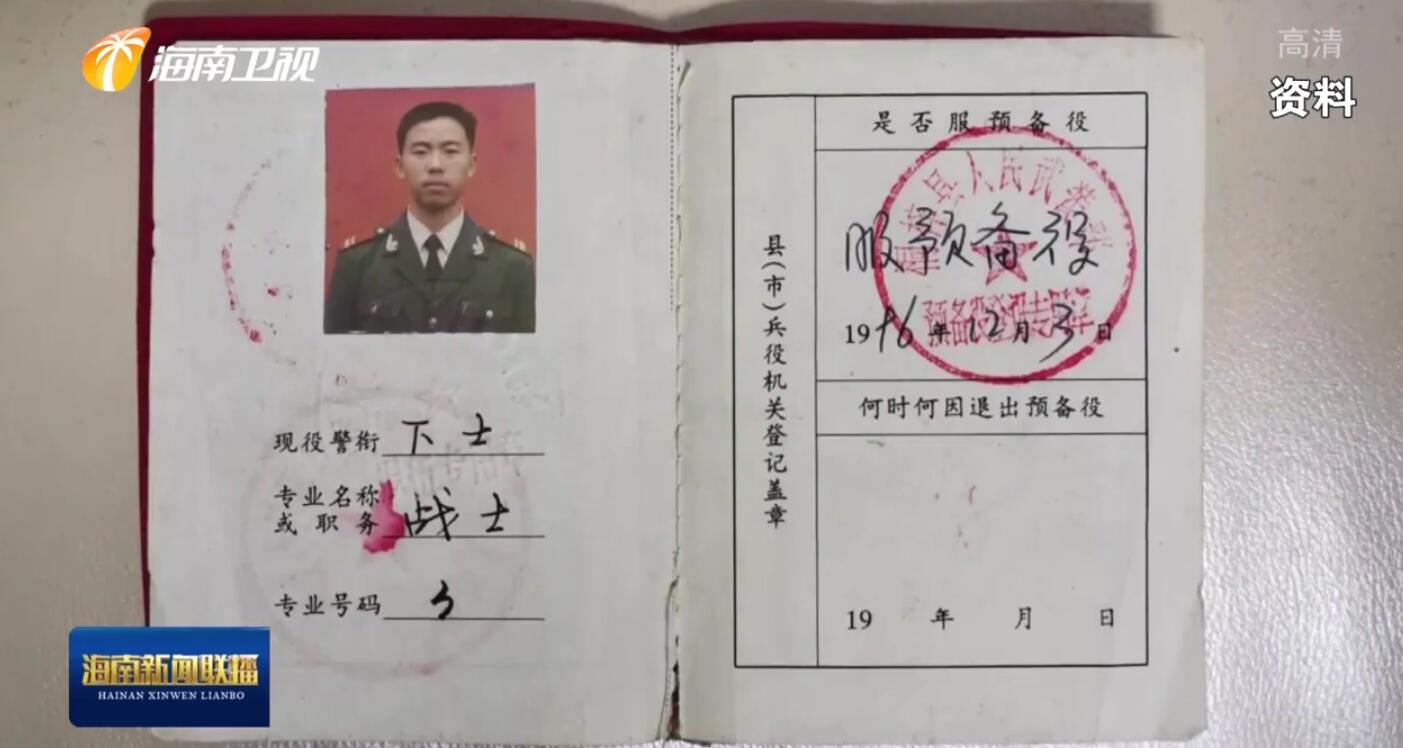 海南卫视
高清
资料
现役警衔 下士
专业名称
或职务 战士
专业号码
县(市)兵役机关登记盖章
是否服预备役
服预备役
1996年12月3日
县人民武装部
何时何因退出预备役
19 年 月 日
海南新闻联播
HAINAN XINWEN LIANBO